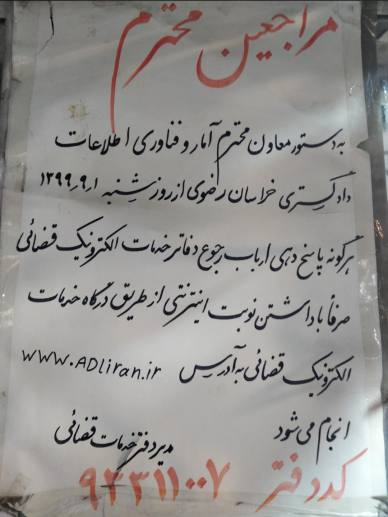 مراجعین محترم
به دستور معاون محترم آمار و فناوری اطلاعات
دادگستری خراسان رضوی از روز شنبه ۱٫۹٫۱۳۹۹
هرگونه پاسخ دهی ارباب رجوع دفاتر خدمات الکترونیک قضائی
صرفاً با داشتن نوبت اینترنتی از طریق درگاه خدمات
الکترونیک قضائی به آدرس www.ADLiran.ir
انجام می شود
مدیر دفتر خدمات قضائی
کد دفتر ۹۳۳۱۱۰۰۷